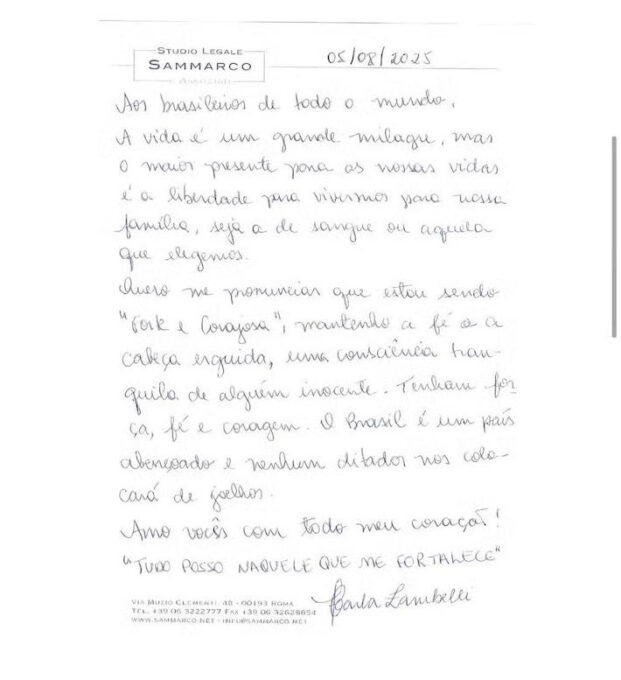 STUDIO LEGALE
SAMMARCO
ASSOCIATI
05/08/2025
Aos brasileiros de todo o mundo,
A vida é um grande milagre, mas
o maior presente para as nossas vidas
é a liberdade para vivermos para nossa
família, seja a de sangue ou aquela
que elegemos.
Quero me pronunciar que estou sendo
"Forte e Corajosa", mantenho a fé e a
cabeça erguida, uma consciência tran-
quila de alguém inocente. Tenham for-
ça, fé e coragem. O Brasil é um país
abençoado e nenhum ditador nos colo-
cará de joelhos.
Amo vocês com todo meu coração!
"TUDO POSSO NAQUELE QUE ME FORTALECE"
Carla Zambelli
VIA MUZIO CLEMENTI, 48 - 00193 ROMA
TEL. +39 06 3222777 FAX +39 06 32628654
WWW.SAMMARCO.NET - INFO@SAMMARCO.NET